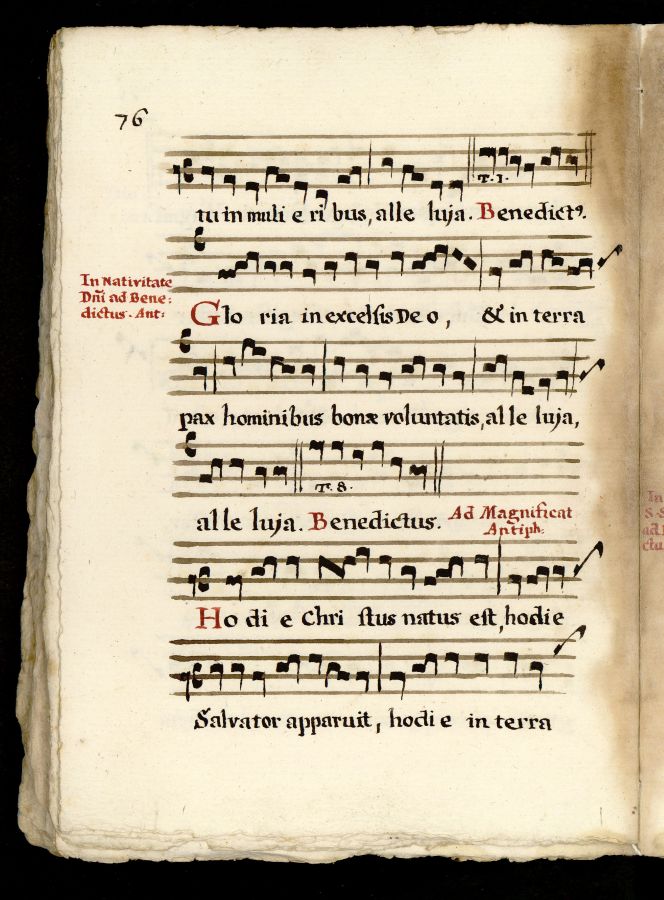 76
T. 1.
tu in muli e ri bus, alle luja. Benedictꝰ.
In Nativitate
Dñi ad Bene:
dictus. Ant:
Glo ria in excelsis Deo, & in terra
pax hominibus bonæ voluntatis, alle luja,
T. 8.
alle luja. Benedictus. Ad Magnificat
Antiph:
Hodi e Chri stus natus est, hodie
Salvator apparuit, hodi e in terra